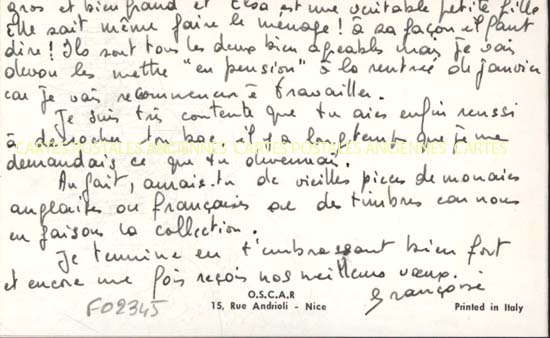 gros et bien grand et Elsa est une véritable petite fille
Elle sait même faire le ménage ! à sa façon il faut
dire ! Ils sont tous les deux bien agréables mais je vais
devoir les mettre "en pension" à la rentrée de janvier
car je vais recommencer à travailler.
Je suis très contente que tu aies enfin réussi
à décrocher ton bac, il y a longtemps que je me
demandais ce que tu devenais.
CARTES POSTALES ANCIENNES CARTES POSTALES ANCIENNES CARTES
Au fait, aurais-tu de vieilles pièces de monnaies
anglaises ou françaises ou des timbres car nous
en faisons la collection.
Je termine en t'embrassant bien fort
et encore une fois reçois nos meilleurs vœux.
Françoise
O.S.C.A.R
15, Rue Andrioli - Nice
Printed in Italy
F02345